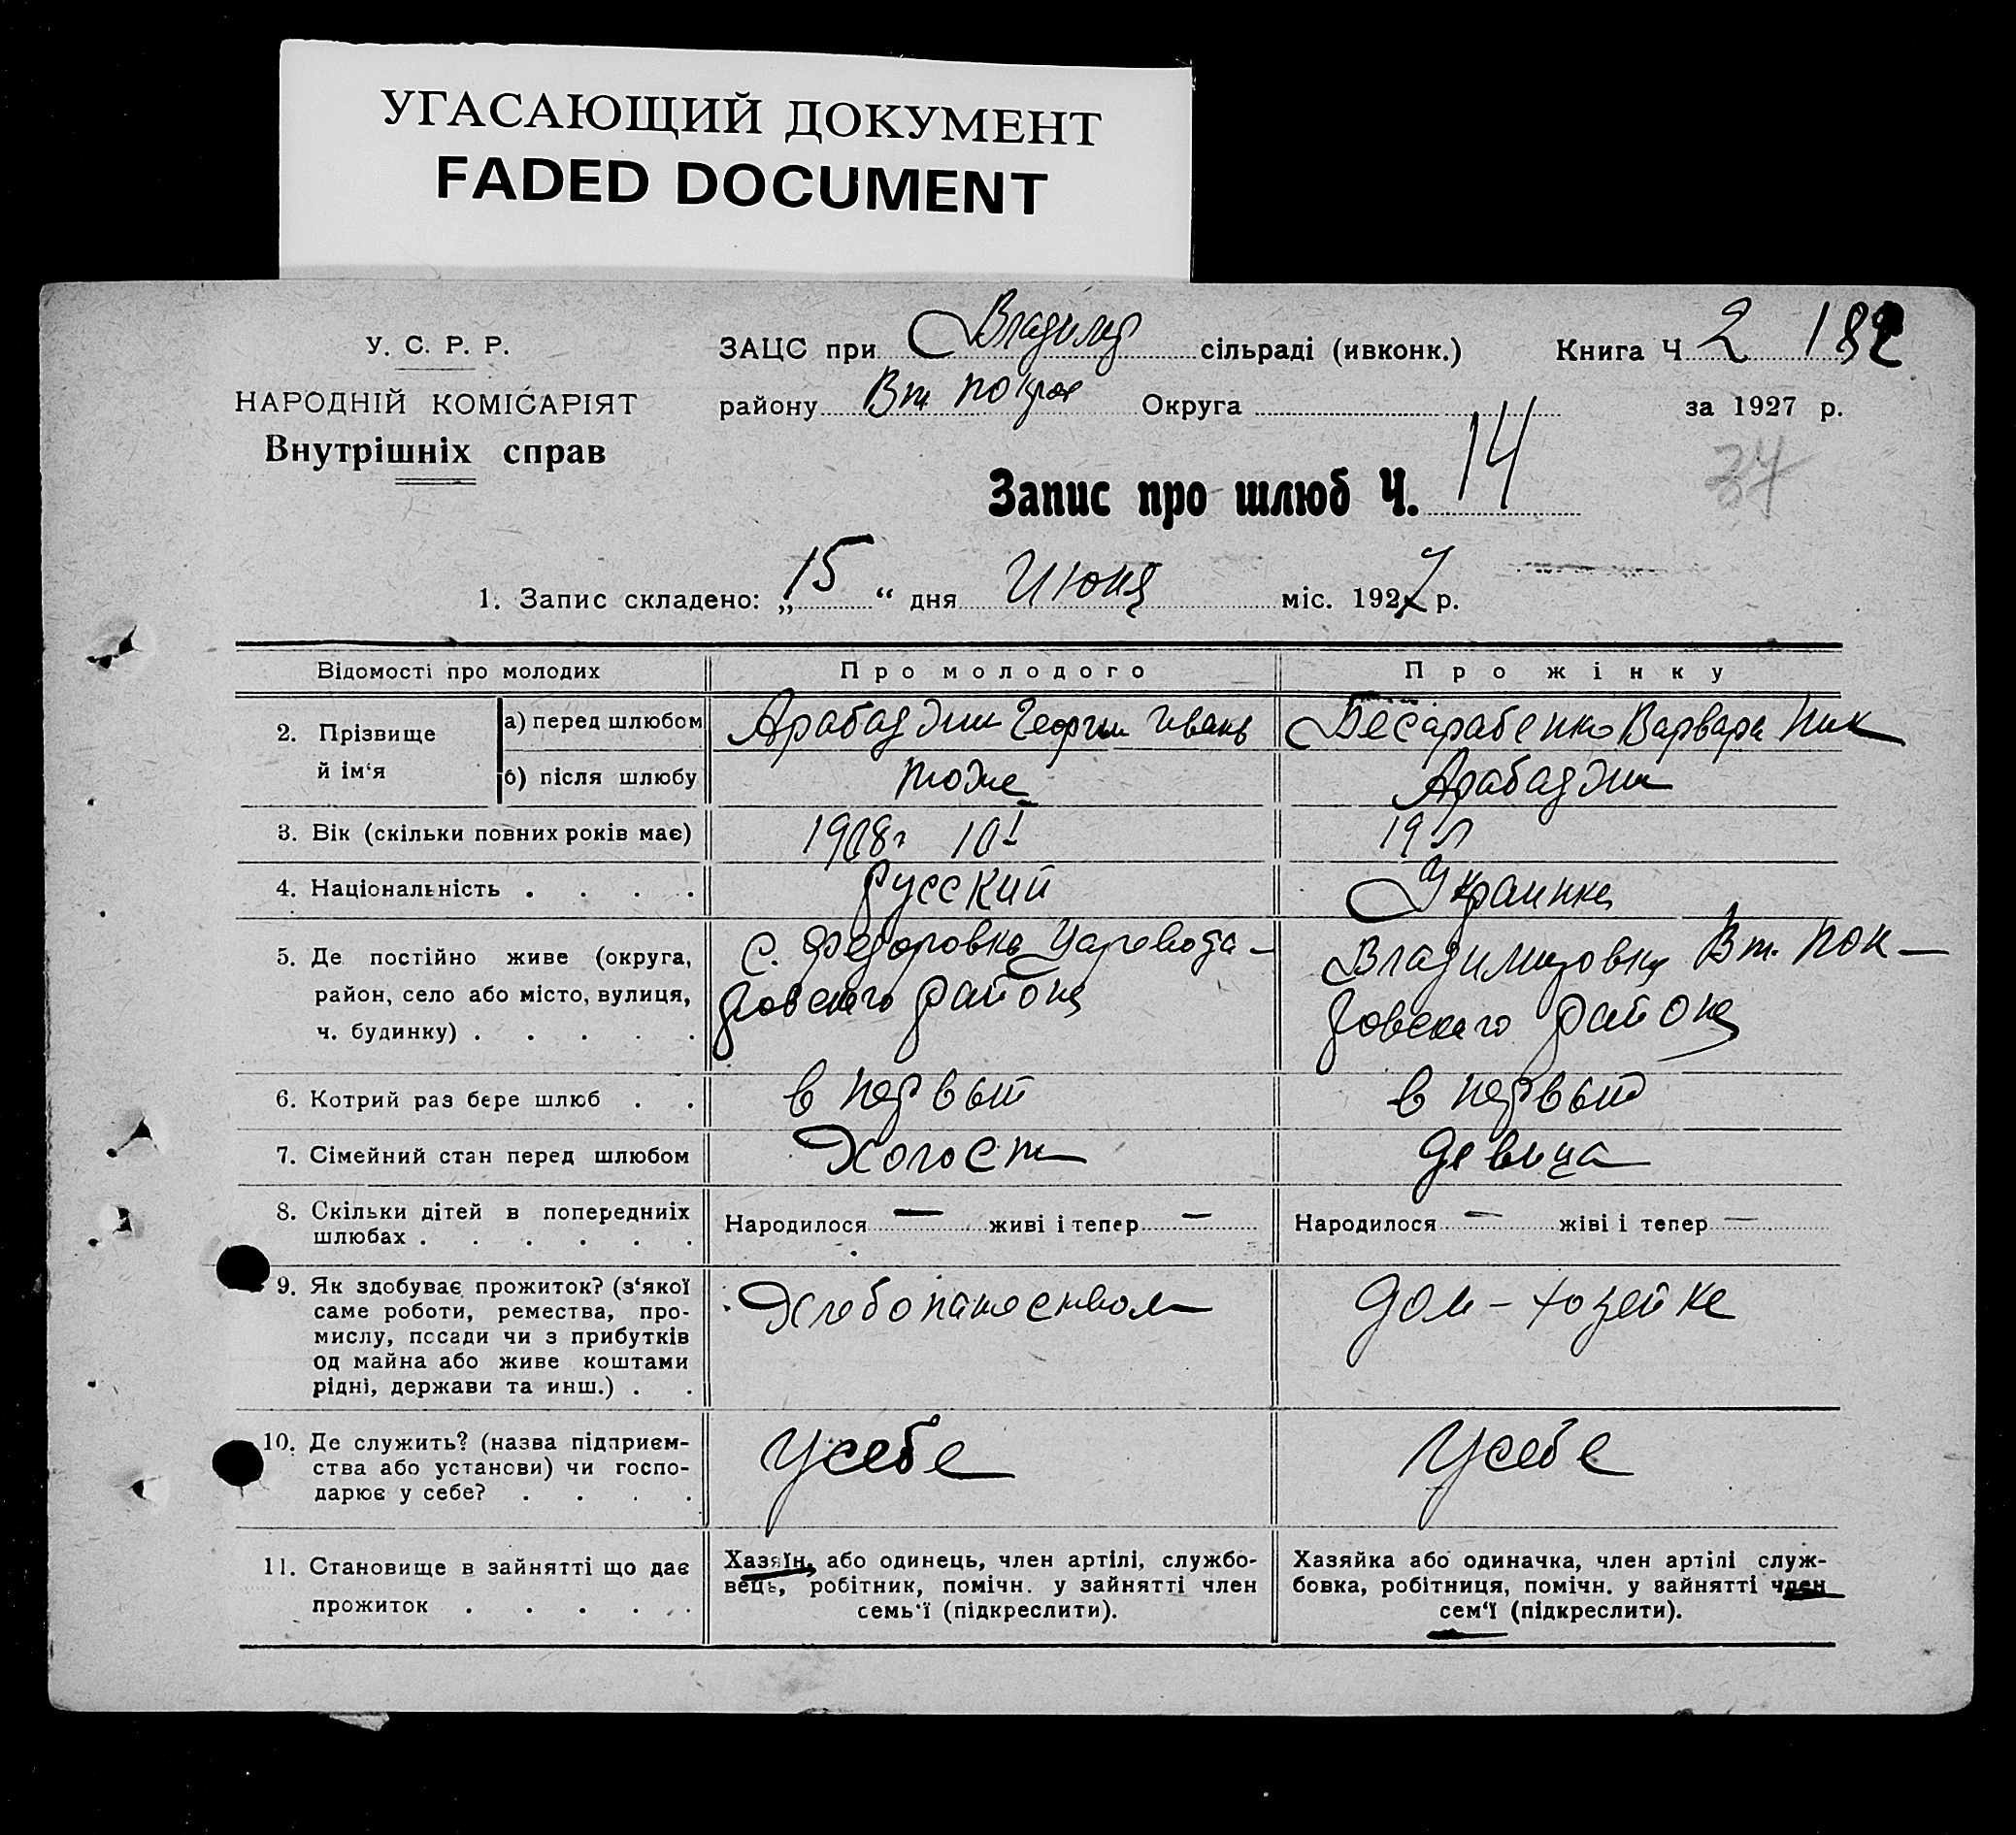 УГАСАЮЩИЙ ДОКУМЕНТ
FADED DOCUMENT
У. С. Р. Р.
НАРОДНІЙ КОМІСАРІЯТ
Внутрішніх справ
ЗАЦС при Владимр сільраді (ивконк.)
Книга Ч 2 182
району Вт покров Округа
за 1927 р.
34
Запис про шлюб Ч. 14
1. Запис складено: „15“ дня Июня міс. 1927 р.
Відомості про молодих
Про молодого
Про жінку
2. Прізвище й ім‘я
а) перед шлюбом
Арабаджи Георгий Иванов
Бесарабенко Варвара Ник
б) після шлюбу
тоже
Арабаджи
3. Вік (скільки повних років має)
1908г
19 л
4. Національність . . . .
русский
Украинка
5. Де постійно живе (округа,
район, село або місто, вулиця,
ч. будинку) . . . . .
с. Федоровка Царевода-
ровского района
Владимировка Вт. Пок-
ровского района
6. Котрий раз бере шлюб . .
в первый
в первый
7. Сімейний стан перед шлюбом
Холост
девица
8. Скільки дітей в попередниіх
шлюбах . . . . . .
Народилося — живі і тепер —
Народилося — жіві і тепер —
9. Як здобуває прожиток? (з‘якої
саме роботи, ремества, про-
мислу, посади чи з прибутків
од майна або живе коштами
рідні, держави та инш.) . .
Хлебопашеством
дом-хозяйка
10. Де служить? (назва підприєм-
ства або установи) чи госпо-
дарює у себе? . . . .
У себе
У себе
11. Становище в зайнятті що дає
прожиток . . . . .
Хазяїн, або одинець, член артілі, службо-
вець, робітник, помічн. у зайнятті член
семь‘ї (підкреслити).
Хазяйка або одиначка, член артілі служ-
бовка, робітниця, помічн. у зайнятті член
сем‘ї (підкреслити).